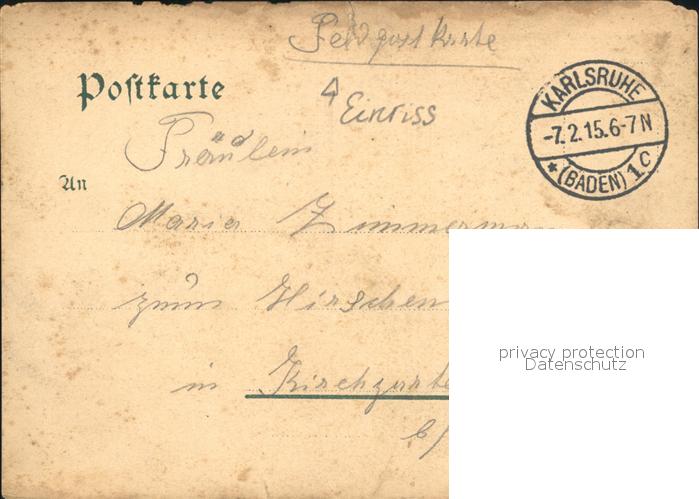 Feldpostkarte
Postkarte
Einriss
KARLSRUHE
-7.2.15.6-7N
* (BADEN) 1c
Fräulein
An
Maria Zimmerman
zum Hirschen
in Kirchzarte
b/
privacy protection
Datenschutz